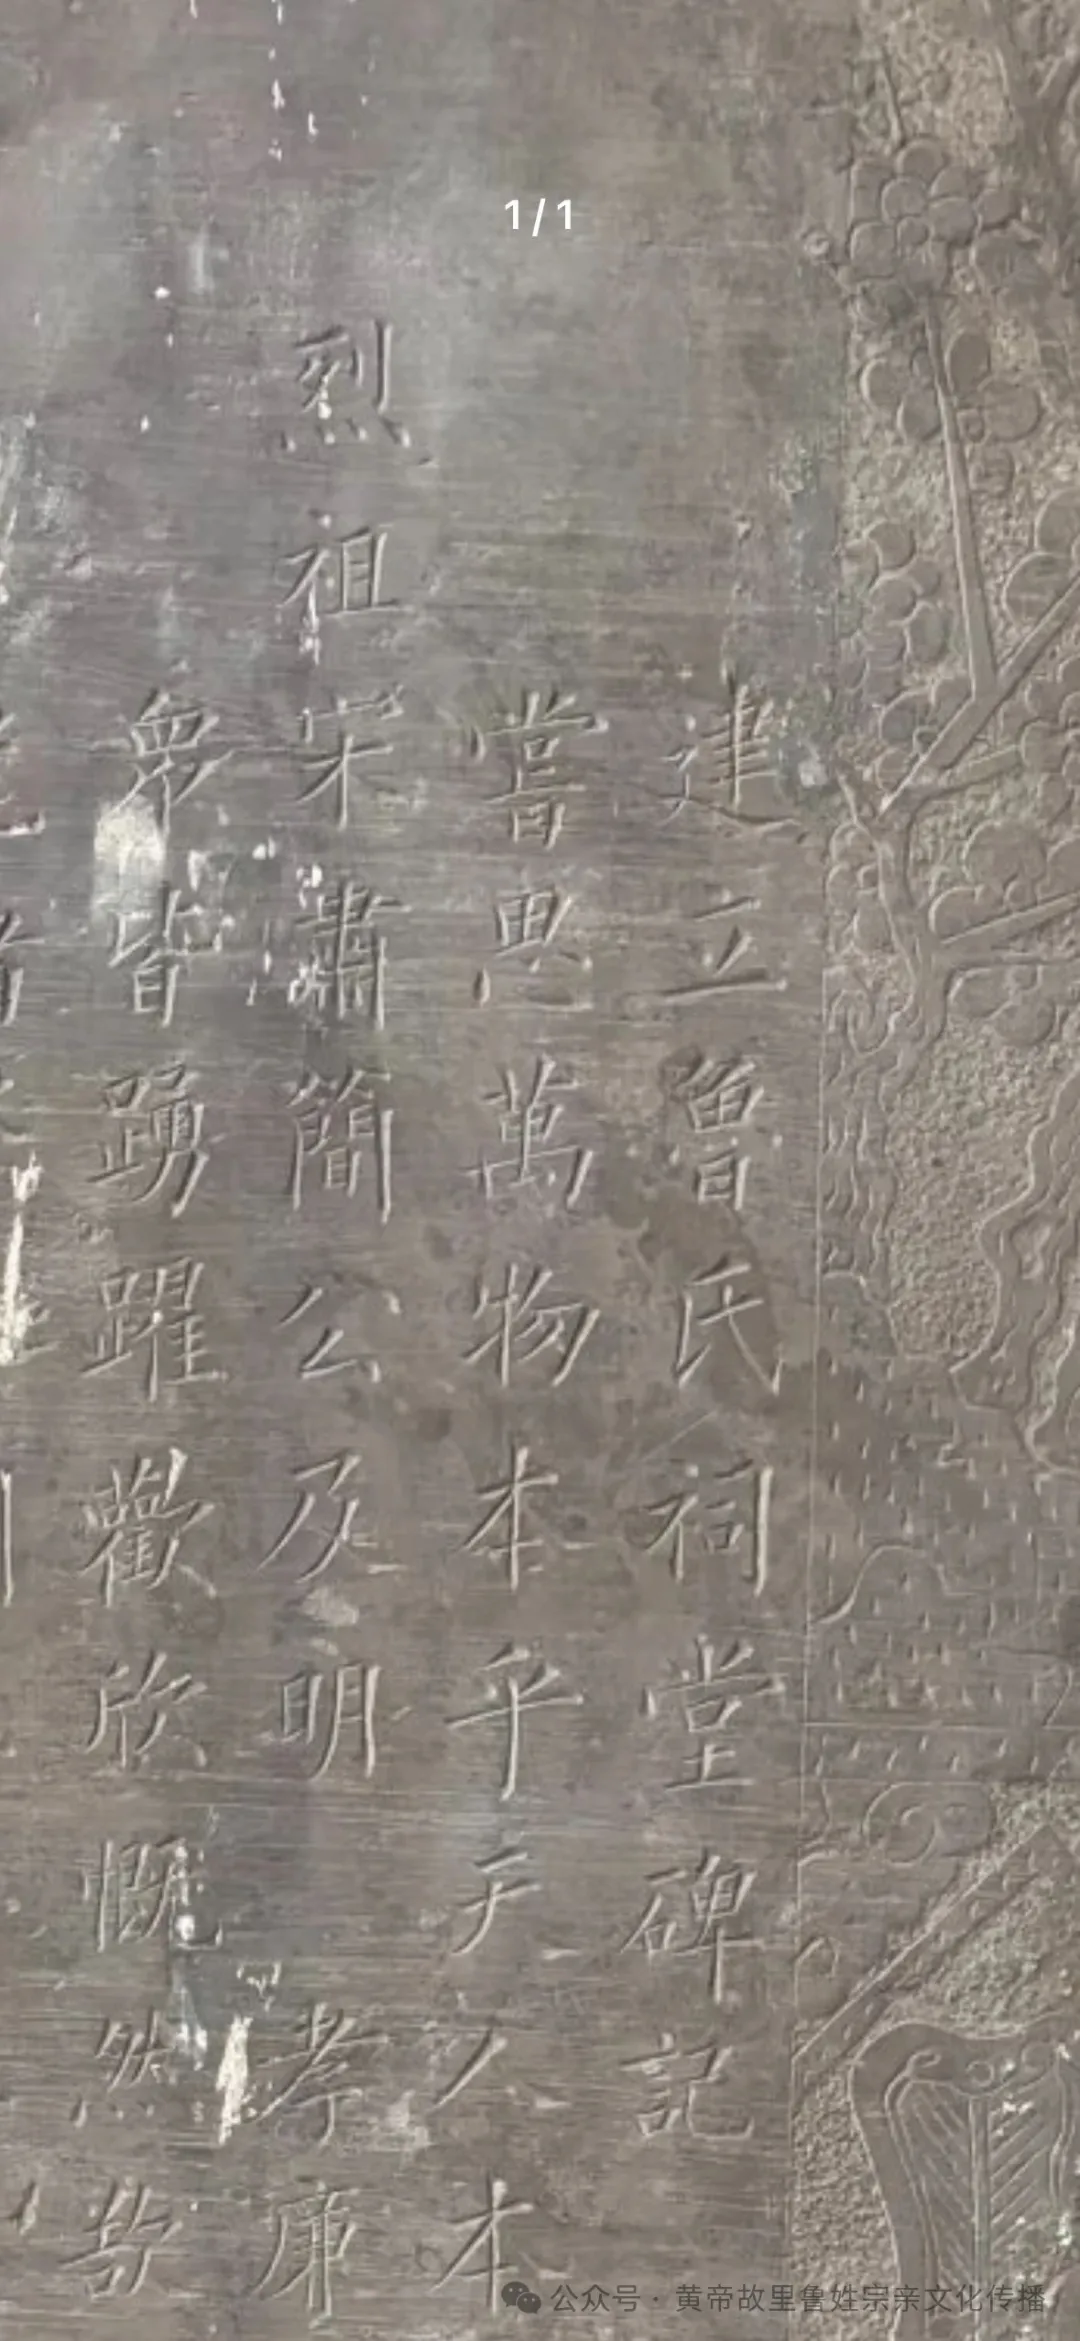 1/1
建立魯氏祠堂碑記
嘗思萬物本乎天人本
烈祖宋肅簡公及明 孝廉
衆皆踴躍歡欣慨然
公众号 · 黄帝故里鲁姓宗亲文化传播